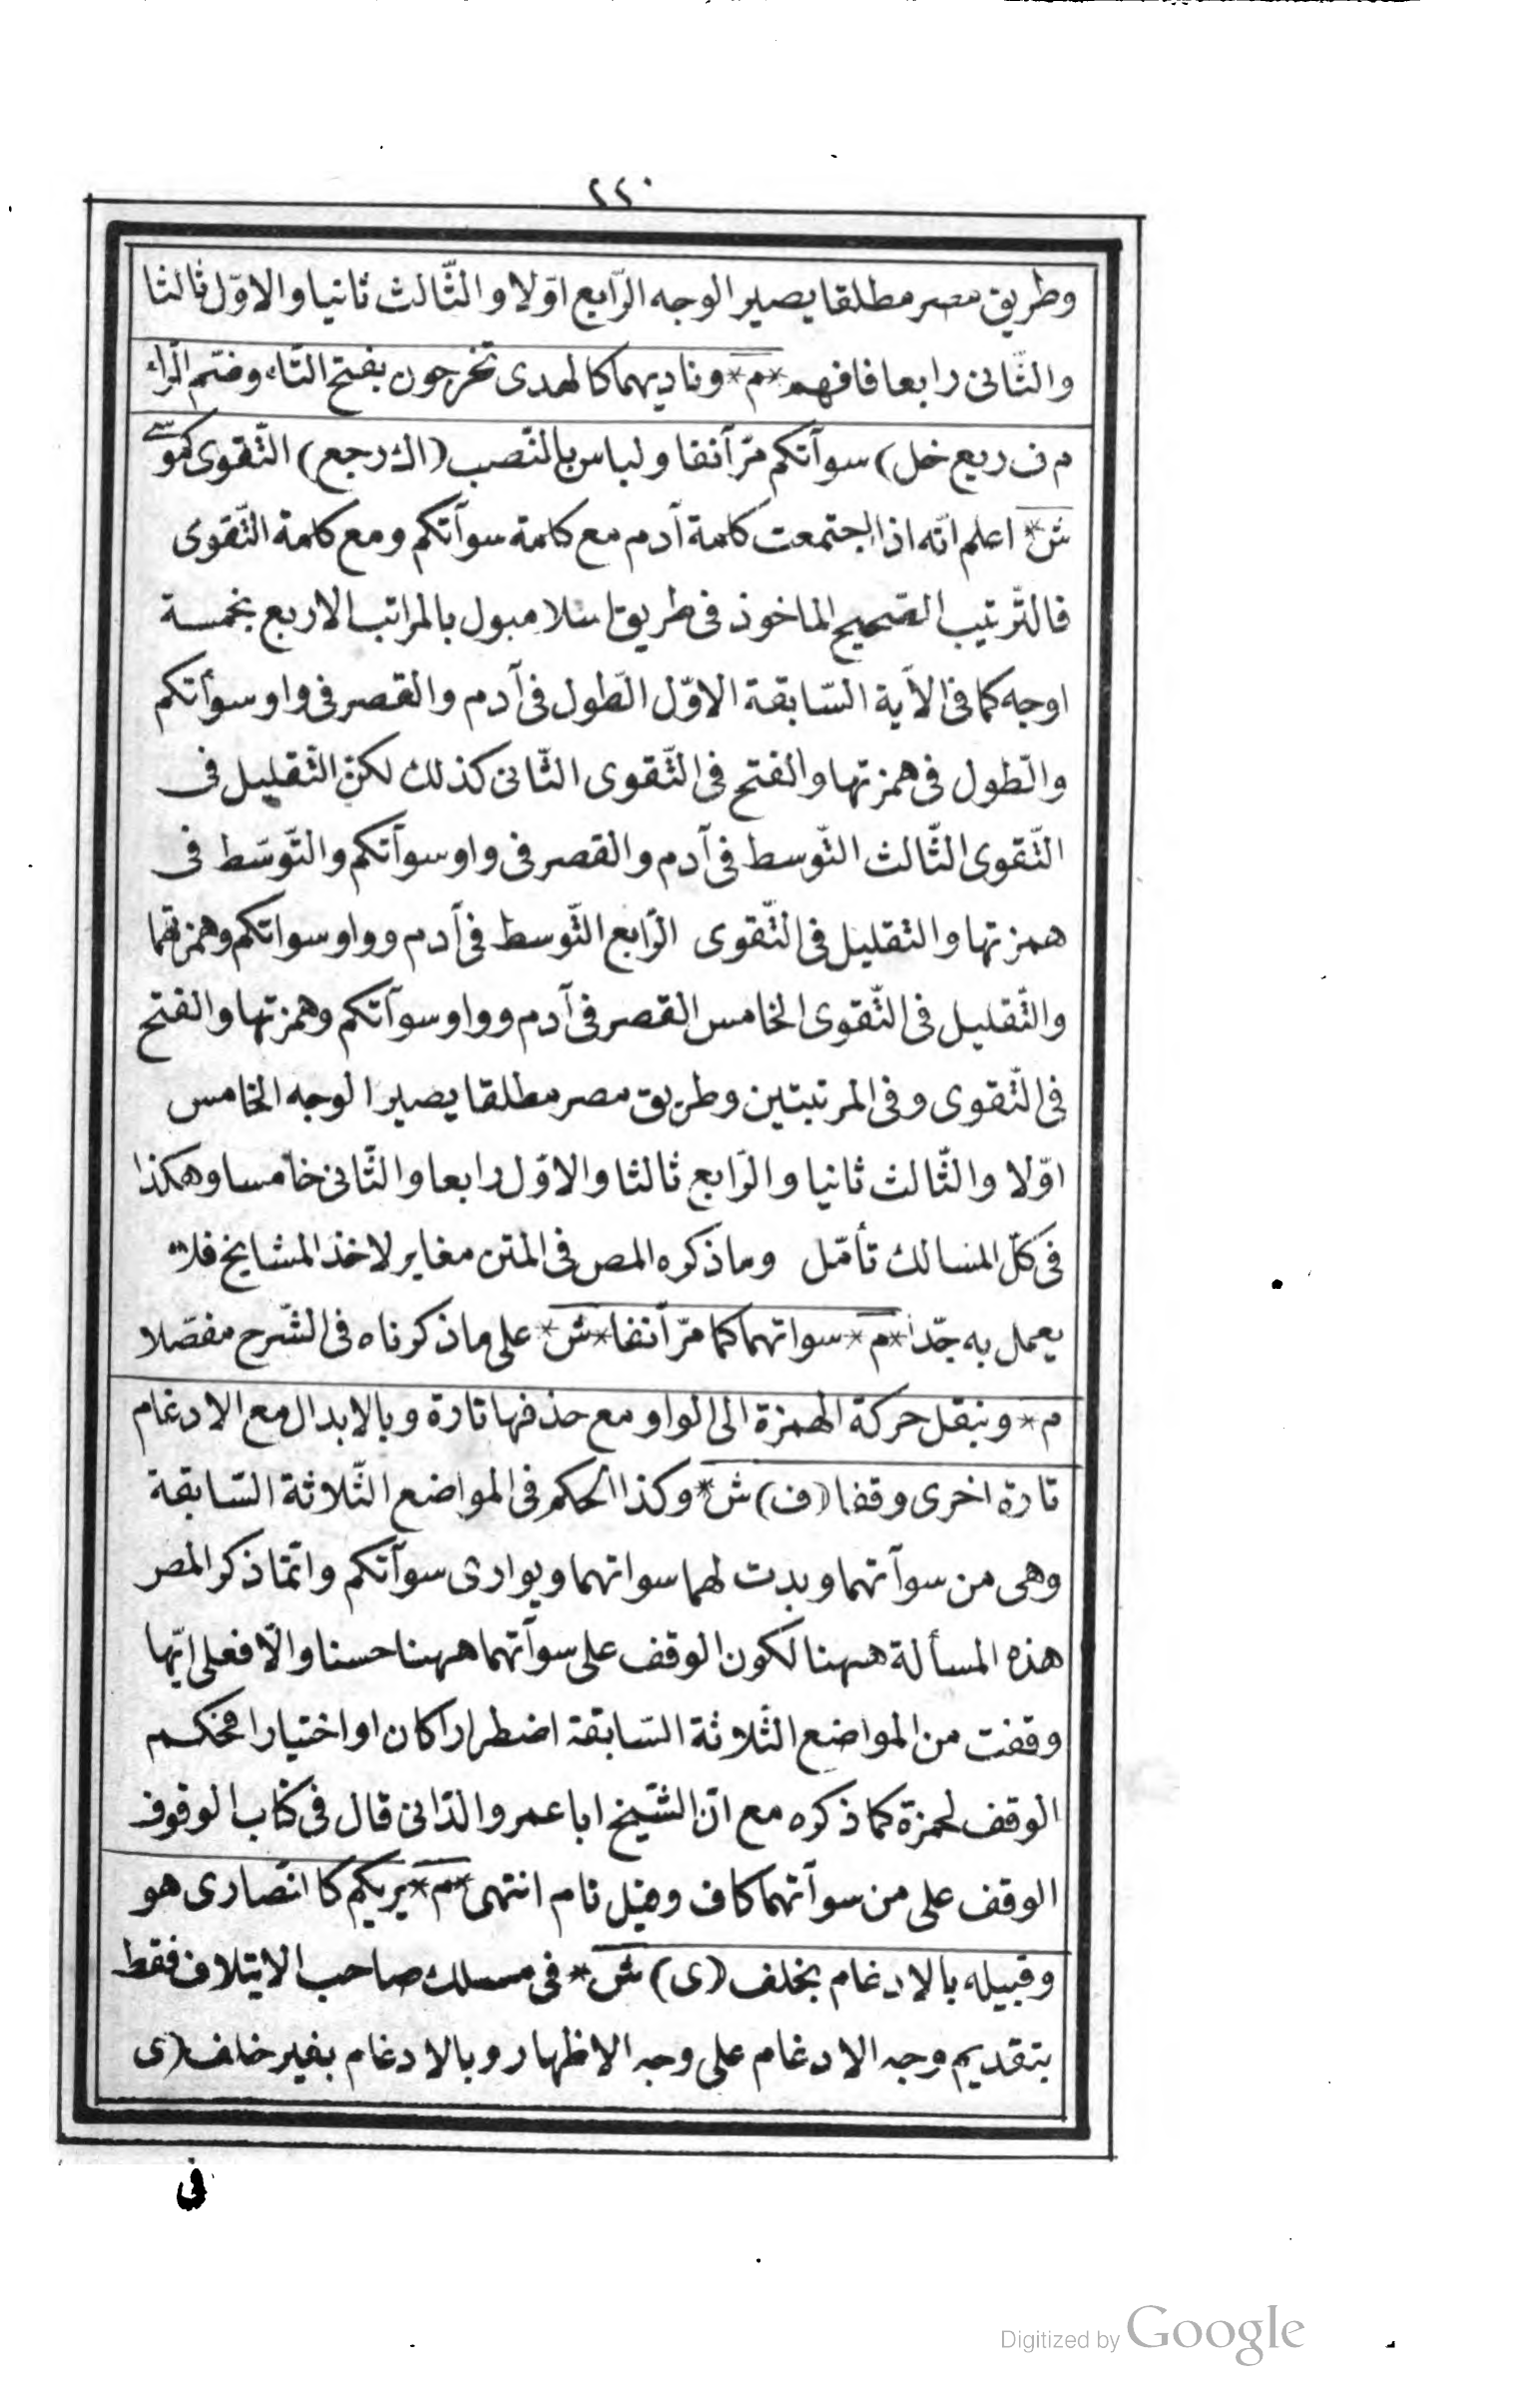 ٢٢٠
وطريق مصر مطلقا يصير الوجه الرّابع اوّلا و الثّالث ثانيا و الاوّل ثالثا
والثّانى رابعا فافهم *م* وناديهما كالهدى تخرجون بفتح التّاء وضمّ الرّاء
م ف ربع خل) سوآتكم مرّ آنفا و لباس بالنّصب (اك رجع) التّقوى كموسى
ش* اعلم انّه اذا اجتمعت كلمة آدم مع كلمة سوآتكم ومع كلمة التّقوى
فالتّرتيب الصّحيح الماخوذ فى طريق اسلامبول بالمراتب الاربع بخمسة
اوجه كما فى الآية السّابقة الاوّل الطّول فى آدم والقصر فى واو سوأتكم
والطّول فى همزتها والفتح فى التّقوى الثّانى كذلك لكنّ التّقليل فى
التّقوى الثّالث التّوسط فى آدم والقصر فى واو سوآتكم والتّوسّط فى
همزتها والتقليل فى التّقوى الرّابع التّوسط فى آدم وواو سواتكم وهمزتهما
والتّقليل فى التّقوى الخامس القصر فى آدم وواو سوآتكم وهمزتها والفتح
فى التّقوى وفى المرتبتين وطريق مصر مطلقا يصير الوجه الخامس
اوّلا والثّالث ثانيا والرّابع ثالثا والاوّل رابعا والثّانى خامسا وهكذا
فى كلّ المسالك تأمّل وما ذكره المص فى المتن مغاير لاخذ المشايخ فلا
يعمل به جدّا *م* سواتهما كما مرّ آنفا *ش* على ما ذكرناه فى الشّرح مفصّلا
م* وبنقل حركة الهمزة الى الواو مع حذفها تارة وبالابدال مع الادغام
تارة اخرى وقفا (ف) ش* وكذا الحكم فى المواضع الثّلاثة السّابقة
وهى من سوآتهما وبدت لهما سواتهما ويوارى سوآتكم وانّما ذكر المص
هذه المسألة ههنا لكون الوقف على سوآتهما ههنا حسنا والّا فعلى ايّها
وقفت من المواضع الثّلاثة السّابقة اضطرارا كان او اختيارا فحكم
الوقف لحمزة كما ذكره مع انّ الشّيخ ابا عمرو الدّانى قال فى كتاب الوقوف
الوقف على من سوآتهما كاف وقيل تام انتهى *م* يريكم كا انصارى هو
وقبيله بالادغام بخلف (ى) ش* فى مسلك صاحب الايتلاف فقط
بتقديم وجه الادغام على وجه الاظهار وبالادغام بغير خلف (ى
فى
Digitized by Google